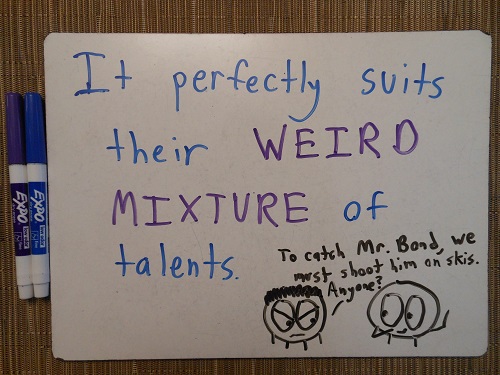 It perfectly suits
their WEIRD
MIXTURE of
talents.
To catch Mr. Bond, we
must shoot him on skis.
Anyone?
EXPO
EXPO